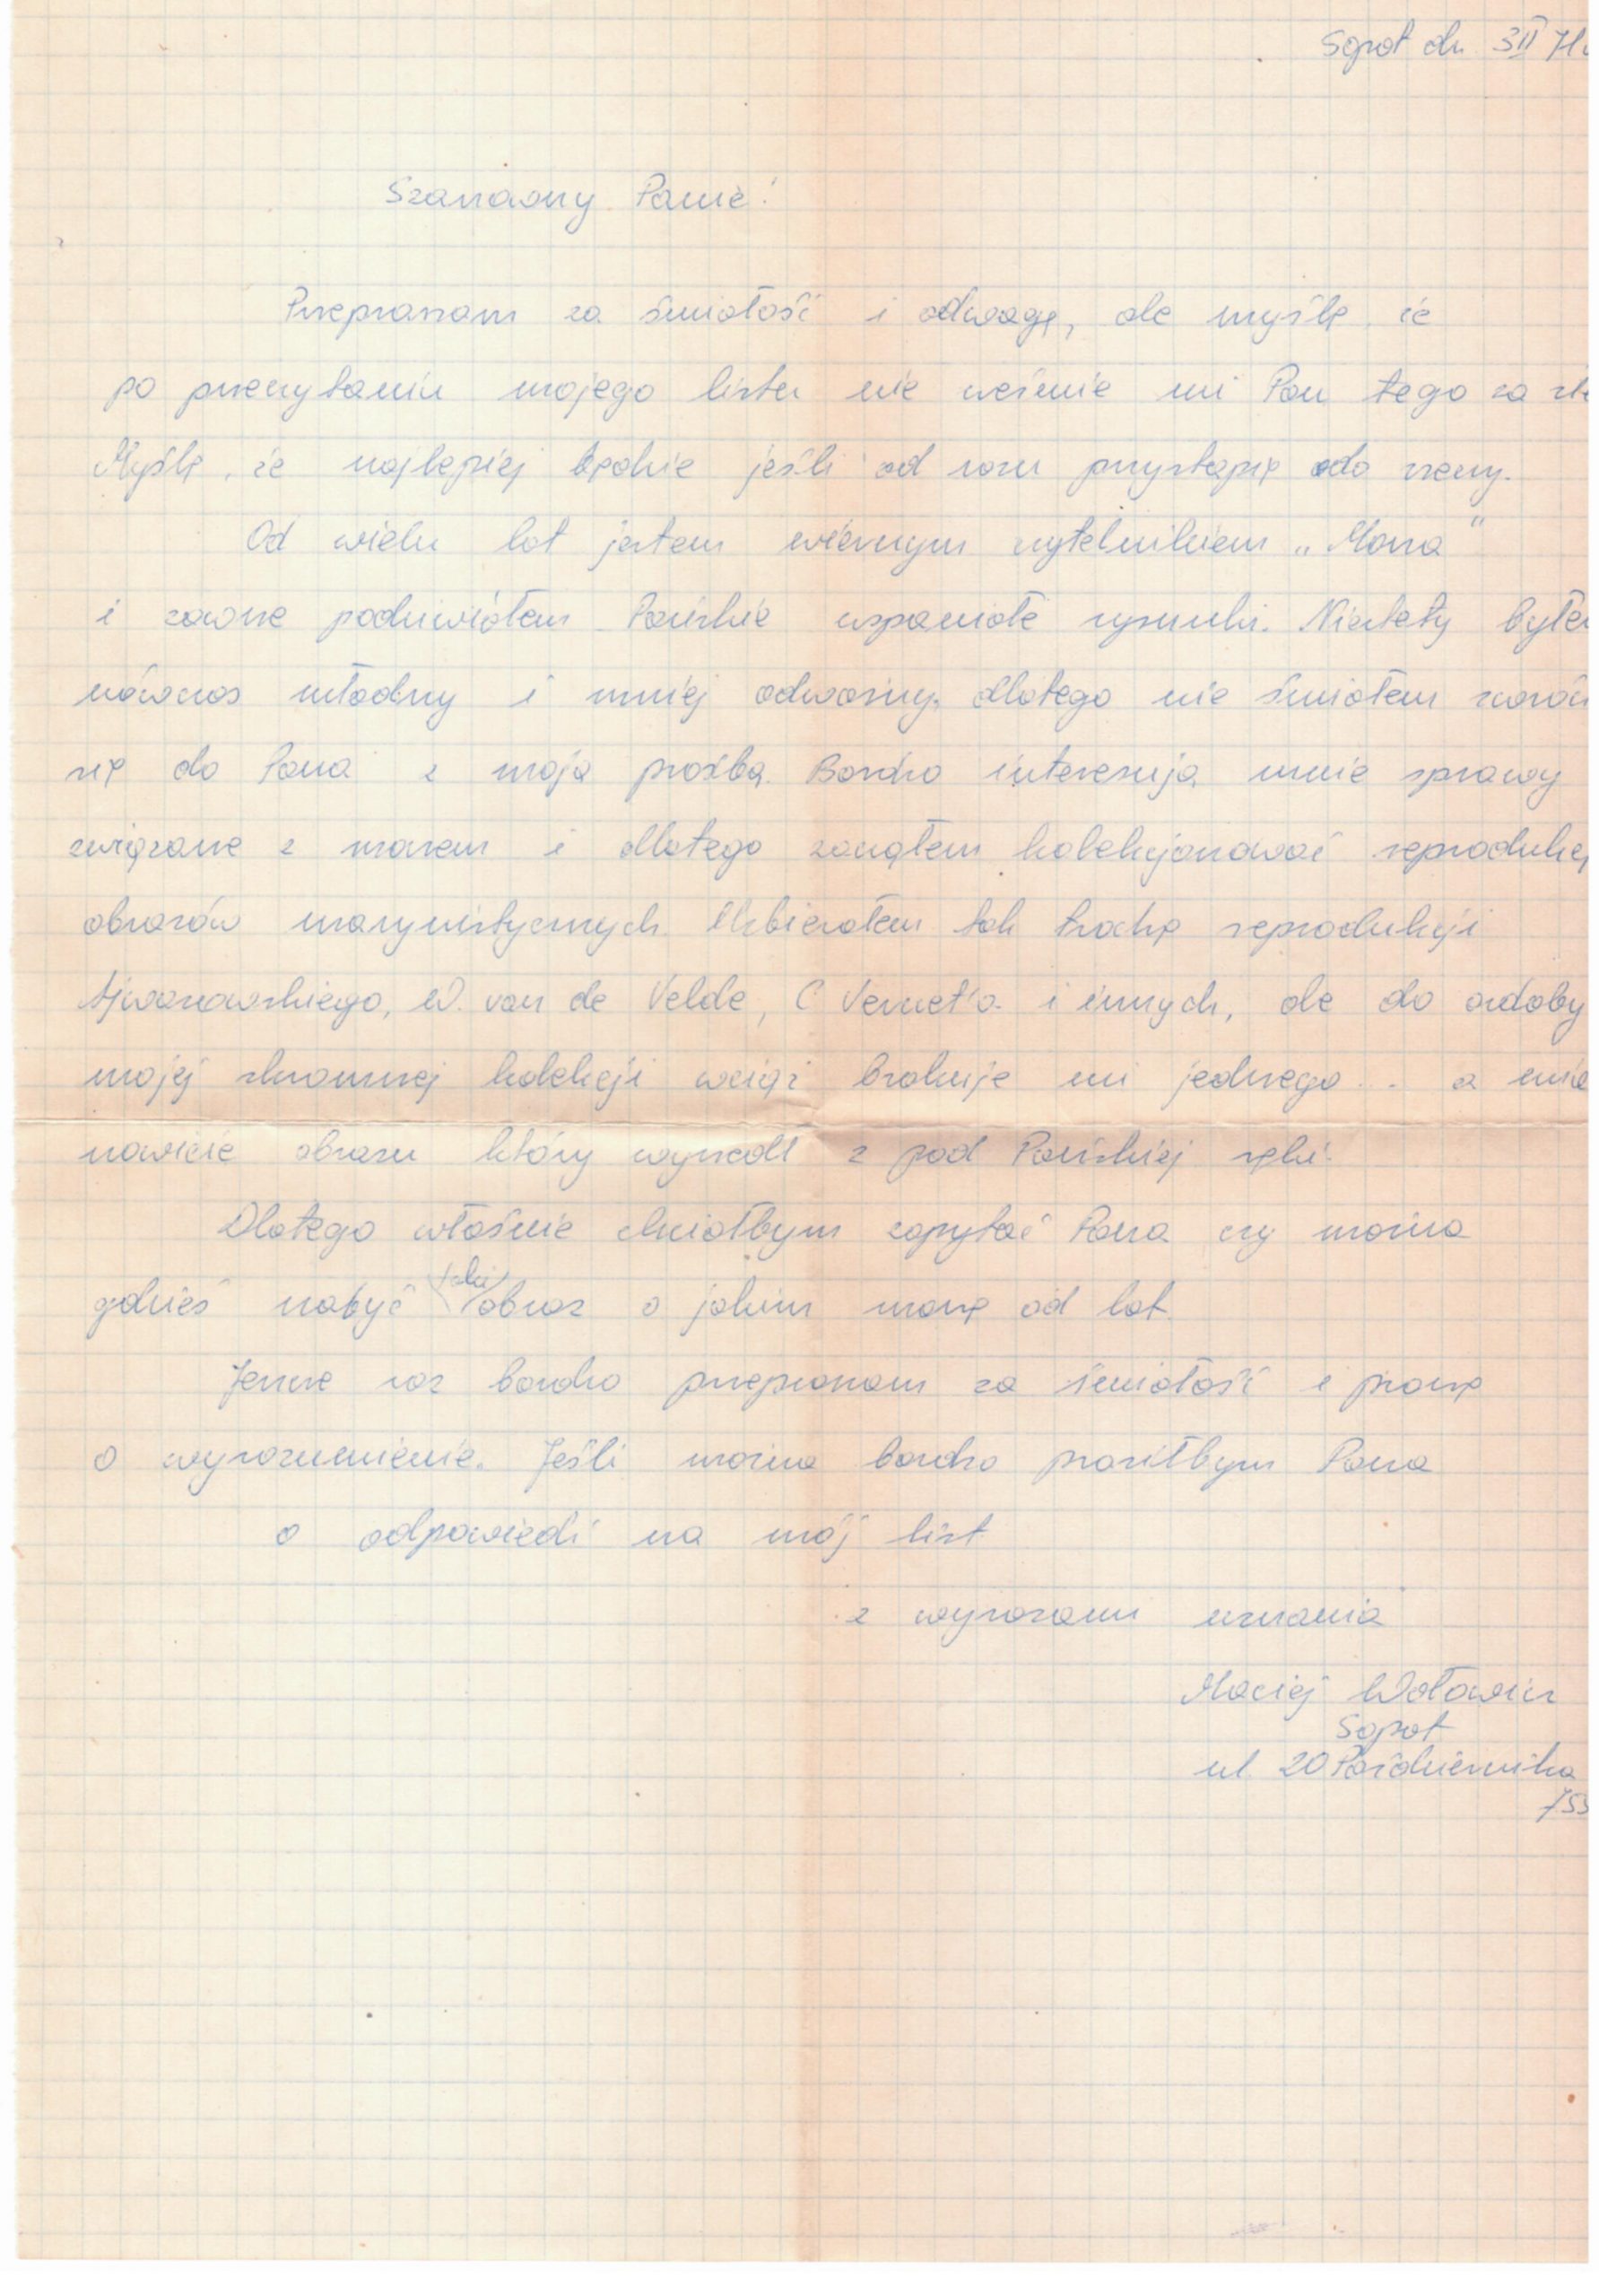 Sopot dn. 3 II 71
Szanowny Panie!
Przepraszam za śmiałość i odwagę, ale myślę, że
po przeczytaniu mojego listu nie weźmie mi Pan tego za złe
Myślę, że najlepiej będzie jeśli od razu przystąpię do rzeczy.
Od wielu lat jestem wiernym czytelnikiem „Morza"
i zawsze podziwiałem Pańskie wspaniałe rysunki. Niestety byłem
wówczas młodszy i mniej odważny, dlatego nie śmiałem zwróci
się do Pana z moją prośbą. Bardzo interesują mnie sprawy
związane z morzem i dlatego zacząłem kolekcjonować reprodukcj
obrazów marynistycznych. Uzbierałem tak trochę reprodukcji
Ajwazowskiego, W. van de Velde, C Vernet'a i innych, ale do ozdoby
mojej skromnej kolekcji wciąż brakuje mi jednego... a mia
nowicie obrazu który wyszedł z pod Pańskiej ręki.
Dlatego właśnie chciałbym zapytać Pana czy można
gdzieś nabyć taki obraz o jakim marzę od lat.
Jeszcze raz bardzo przepraszam za śmiałość i proszę
o wyrozumienie. Jeśli można bardzo prosiłbym Pana
o odpowiedź na mój list
z wyrazami uznania
Maciej Wołowicz
Sopot
ul. 20 Października